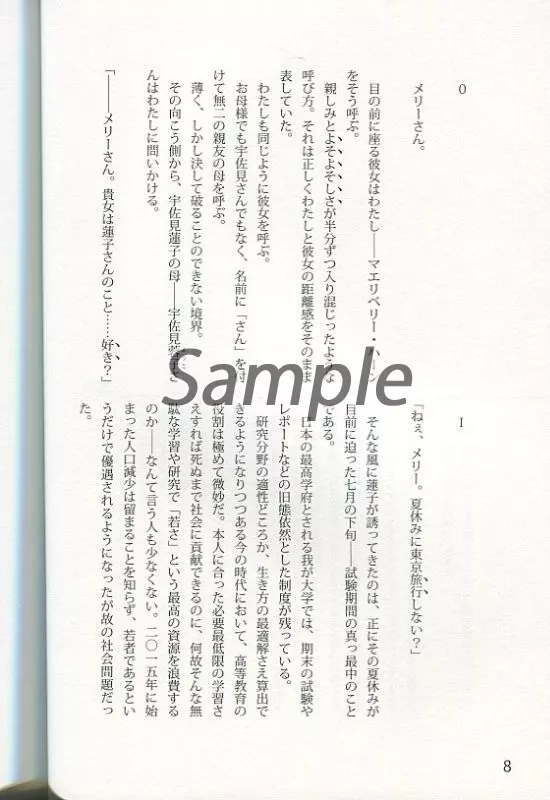 0
メリーさん。
目の前に座る彼女はわたし――マエリベリー・ハーン
をそう呼ぶ。
親しみとよそよそしさが半分ずつ入り混じったような
呼び方。それは正しくわたしと彼女の距離感をそのまま
表していた。
わたしも同じように彼女を呼ぶ。
お母様でも宇佐見さんでもなく、名前に「さん」を付
けて無二の親友の母を呼ぶ。
薄く、しかし決して破ることのできない境界。
その向こう側から、宇佐見蓮子の母――宇佐見
んはわたしに問いかける。
「――メリーさん。貴女は蓮子さんのこと……好き？」
1
「ねぇ、メリー。夏休みに東京旅行しない？」
そんな風に蓮子が誘ってきたのは、正にその夏休みが
目前に迫った七月の下旬――試験期間の真っ最中のこと
である。
日本の最高学府とされる我が大学では、期末の試験や
レポートなどの旧態依然とした制度が残っている。
研究分野の適性どころか、生き方の最適解さえ算出で
きるようになりつつある今の時代において、高等教育の
役割は極めて微妙だ。本人に合った必要最低限の学習さ
えすれば死ぬまで社会に貢献できるのに、何故そんな無
駄な学習や研究で「若さ」という最高の資源を浪費する
のか――なんて言う人も少なくない。二〇一五年に始
まった人口減少は留まることを知らず、若者であるとい
うだけで優遇されるようになったが故の社会問題だっ
た。
8
Sample